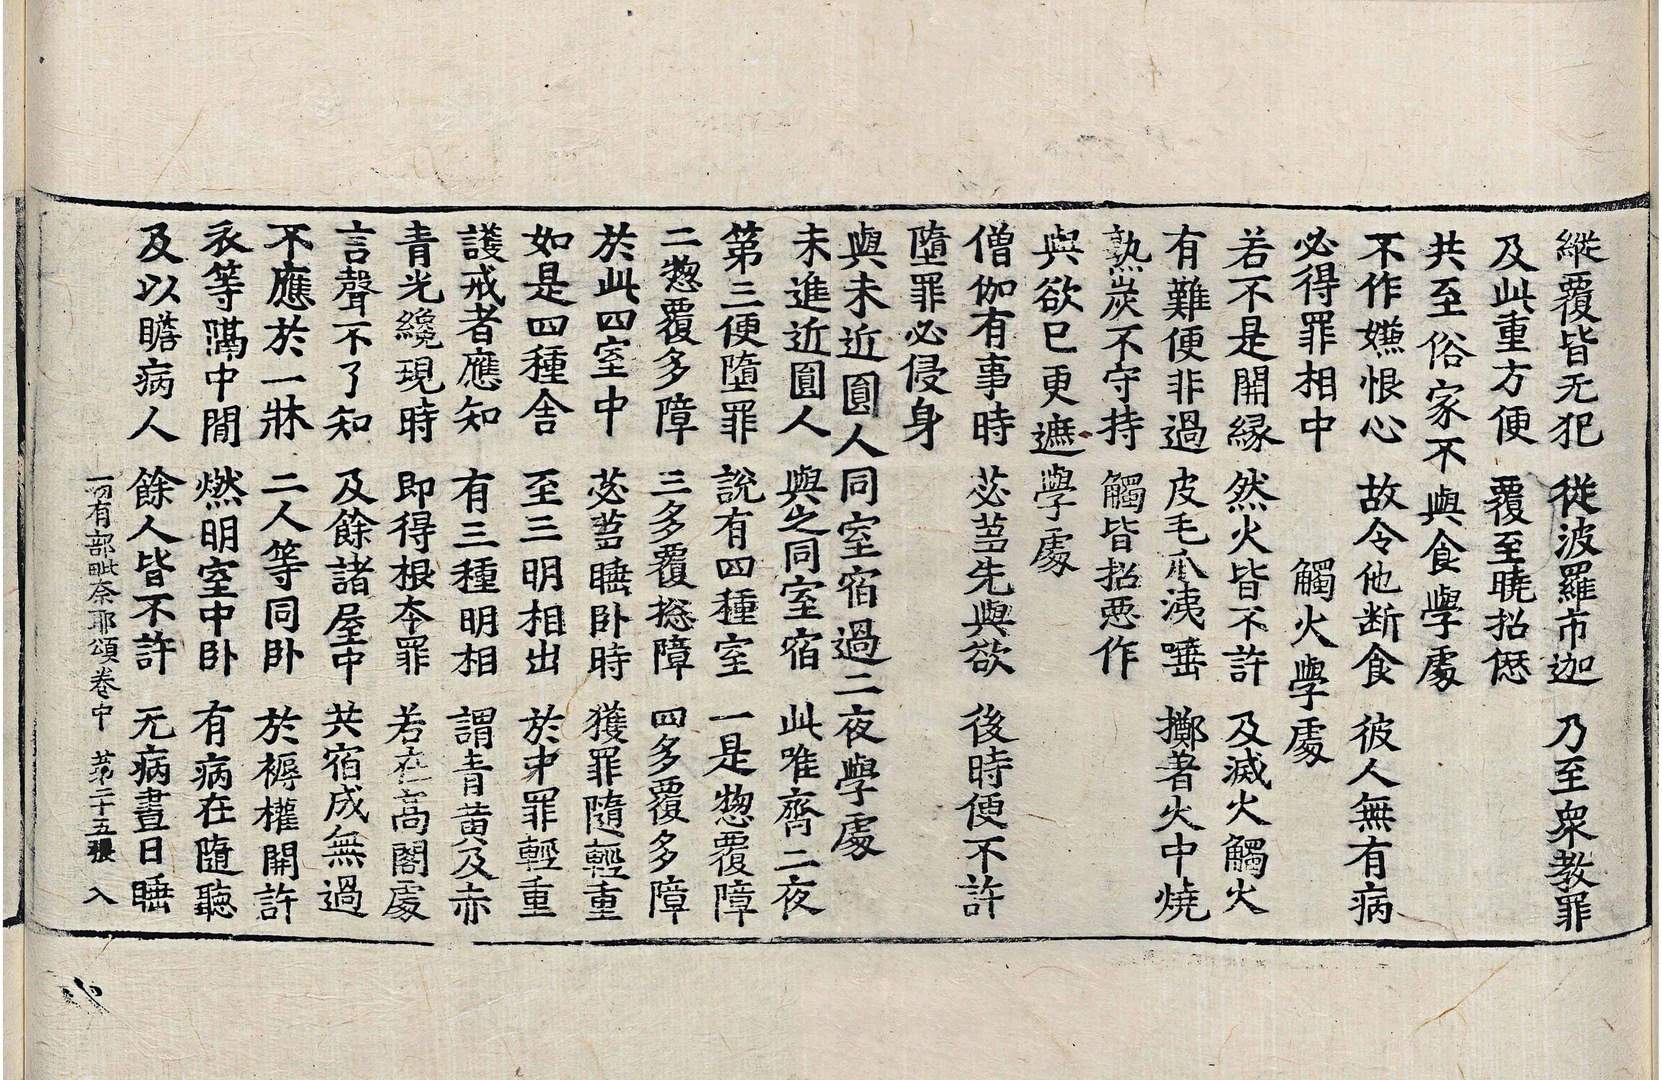 縱覆皆无犯 從波羅市迦 乃至衆教罪
及此重方便 覆至曉招愆
共至俗家不與食學處
不作嫌恨心 故令他断食 彼人無有病
必得罪相中 觸火學處
若不是開縁 然火皆不許 及滅火觸火
有難便非過 皮毛爪洟唾 擲著火中燒
熟炭不守持 觸皆招惡作
與欲已更遮學處
僧伽有事時 苾芻先與欲 後時便不許
墮罪必侵身
與未近圓人同室宿過二夜學處
未進近圓人 與之同室宿 此唯齊二夜
第三便墮罪 說有四種室 一是惣覆障
二惣覆多障 三多覆惣障 四多覆多障
於此四室中 苾芻睡卧時 獲罪隨輕重
如是四種舍 至三明相出 於中罪輕重
護戒者應知 有三種明相 謂青黄及赤
青光纔現時 即得根本罪 若在高閣處
言聲不了知 及餘諸屋中 共宿成無過
不應於一牀 二人等同卧 於褥權開許
衣等隔中間 燃明室中卧 有病在隨聽
及以瞻病人 餘人皆不許 无病晝日睡
一切有部毗奈耶頌卷中 第二十五張 入